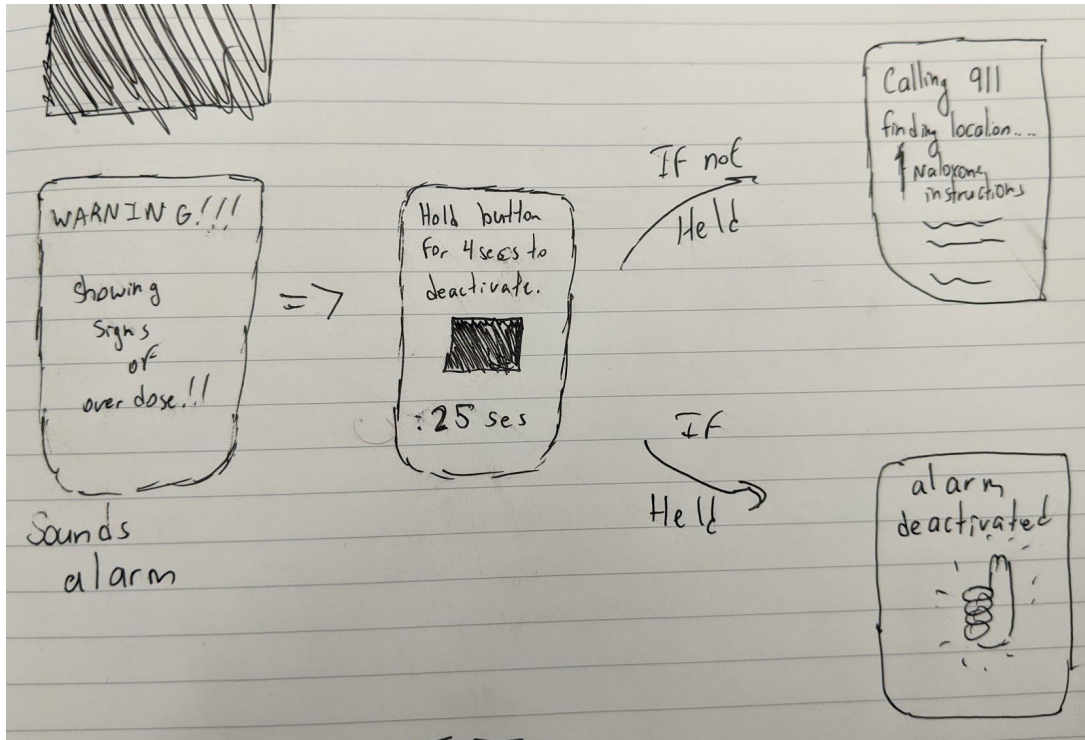 WARNING!!!
showing
signs
of
overdose!!
Sounds
alarm
=>
Hold button
for 4 secs to
deactivate.
:25 ses
If not
Held
Calling 911
finding location....
Naloxone
instructions
If
Held
alarm
deactivated